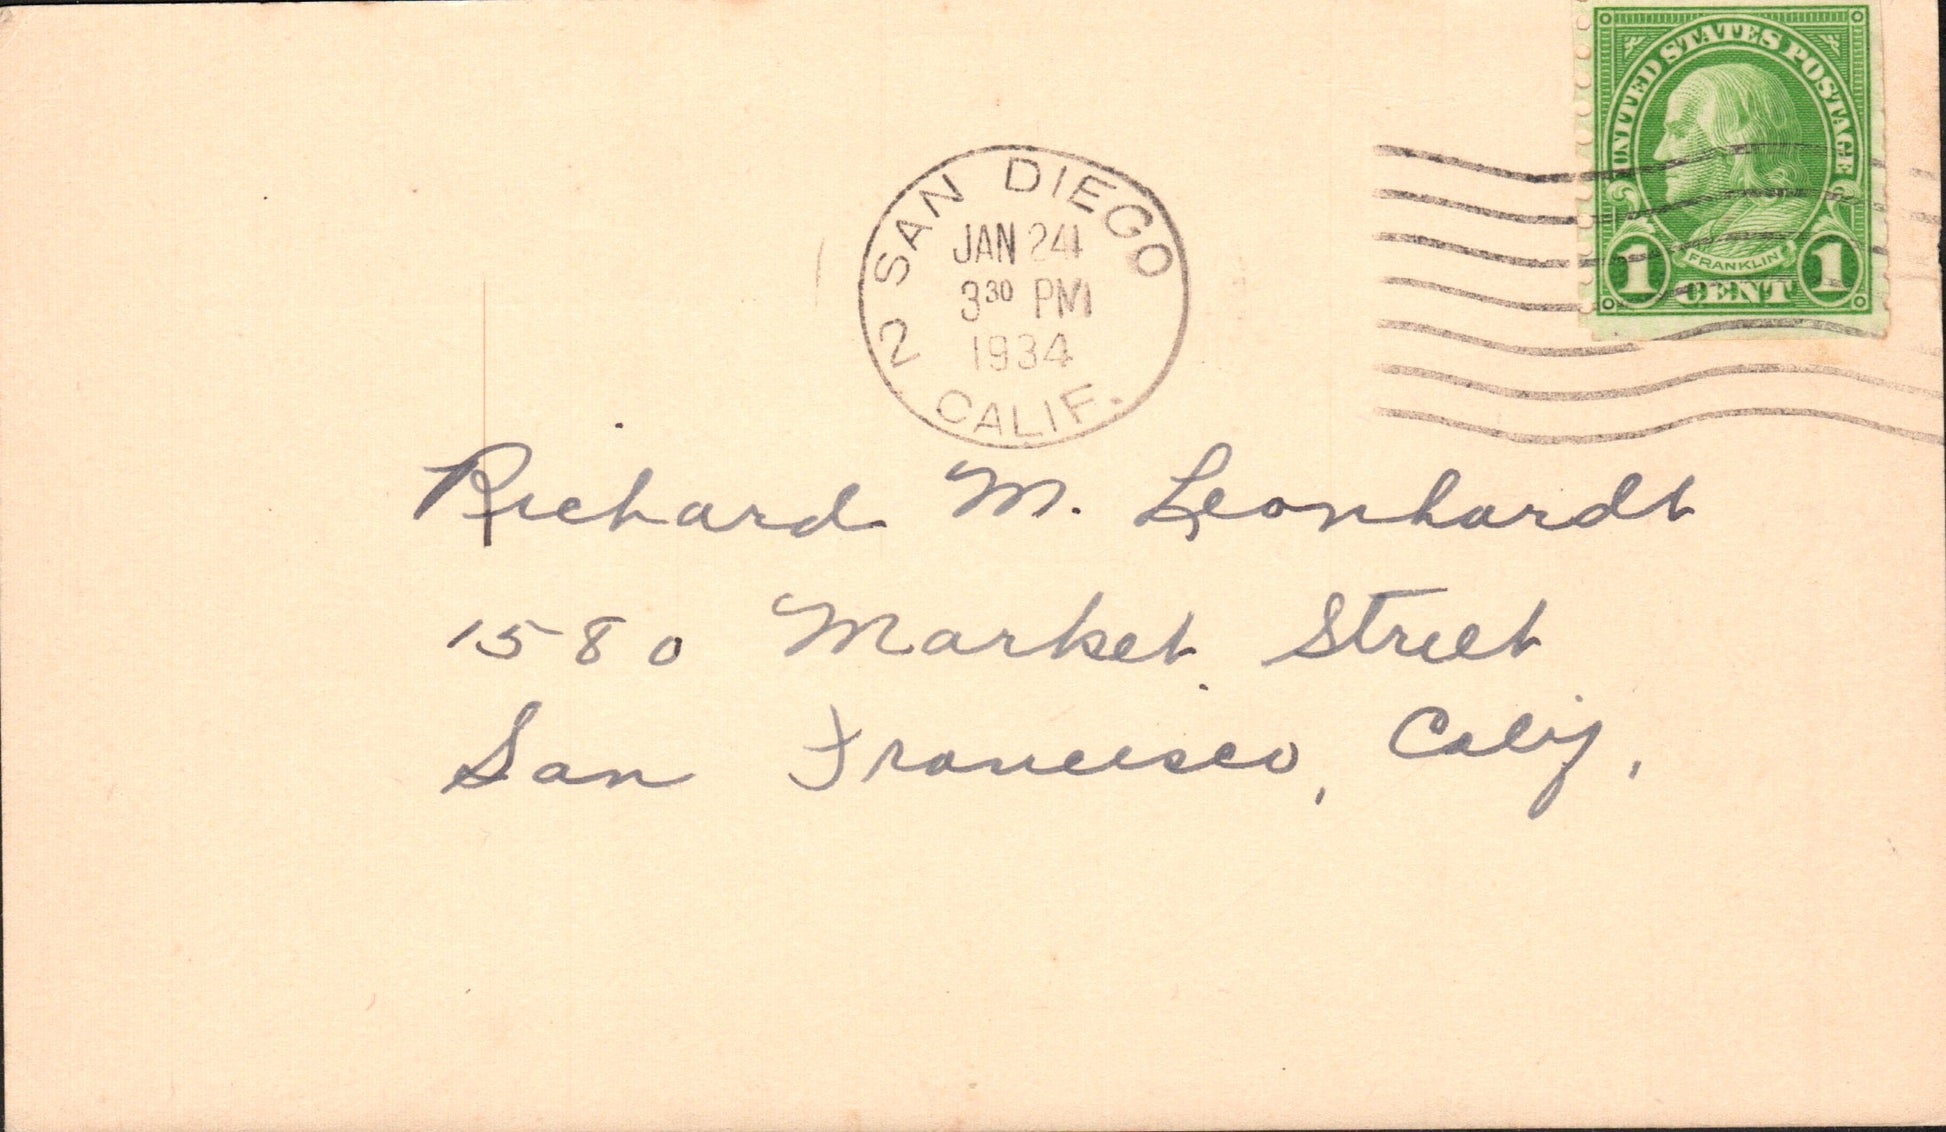 UNITED STATES POSTAGE
FRANKLIN
1 CENT 1
2 SAN DIEGO
JAN 24
3 30 PM
1934
CALIF.
Richard M. Leonhardt
1580 Market Street
San Francisco, Calif.